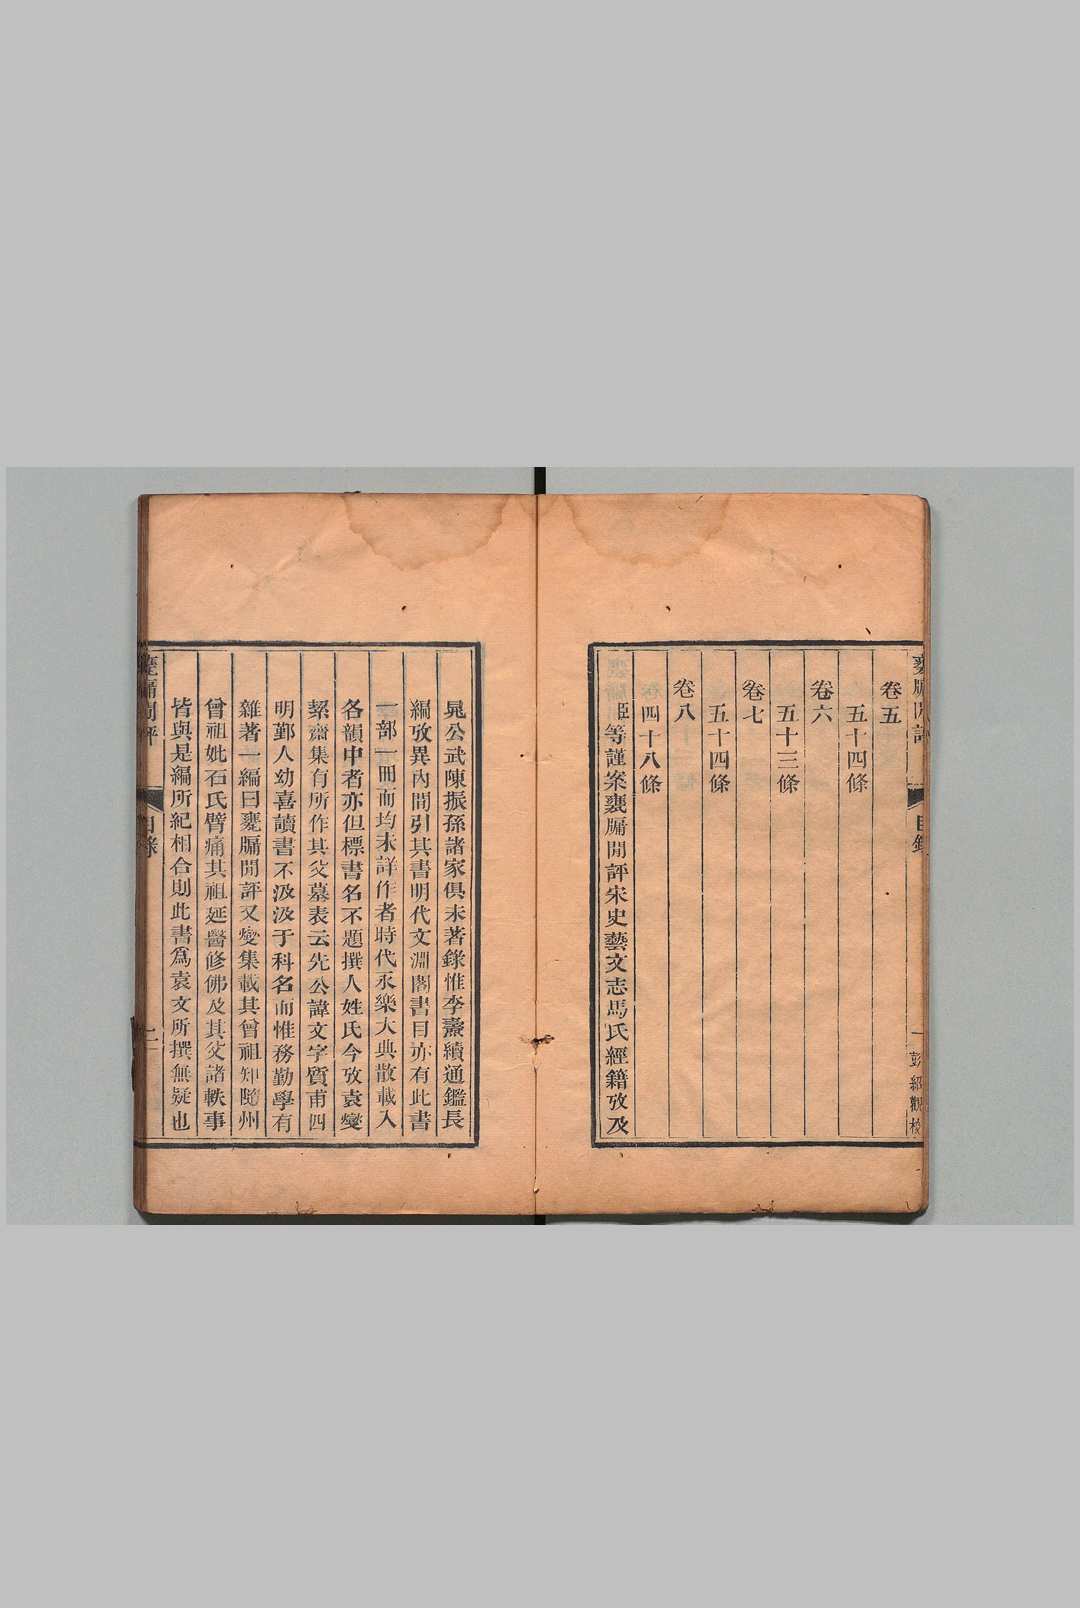 甕牖閒評
目錄
一
彭紹觀校
卷五
五十四條
卷六
五十三條
卷七
五十四條
卷八
四十八條
臣等謹案甕牖閒評宋史藝文志馬氏經籍攷及
晁公武陳振孫諸家俱未著錄惟李燾續通鑑長
編攷異內間引其書明代文淵閣書目亦有此書
一部一冊而均未詳作者時代永樂大典散載入
各韻中者亦但標書名不題撰人姓氏今攷袁燮
絜齋集有所作其父墓表云先公諱文字質甫四
明鄞人幼喜讀書不汲汲于科名而惟務勤學有
雜著一編曰甕牖閒評又燮集載其曾祖知隨州
曾祖妣石氏臂痛其祖延醫修佛及其父諸軼事
皆與是編所紀相合則此書爲袁文所撰無疑也
甕牖閒評
目錄